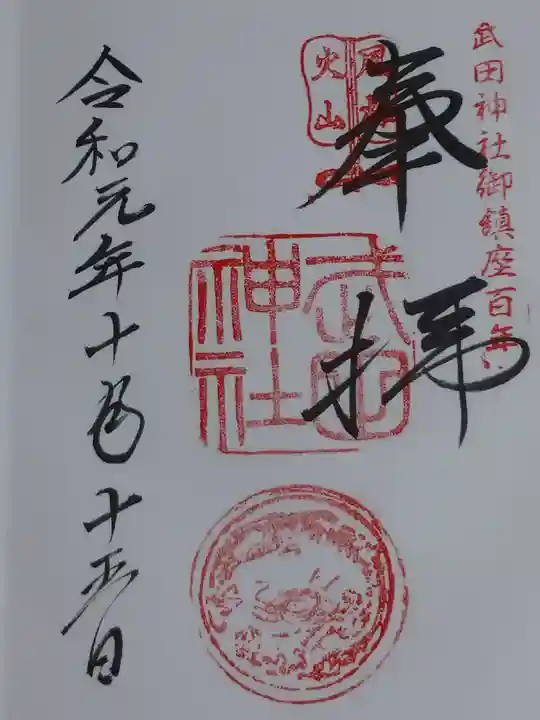 武田神社御鎮座百年
奉拝
風林
火山
武田
神社
令和元年十月十五日